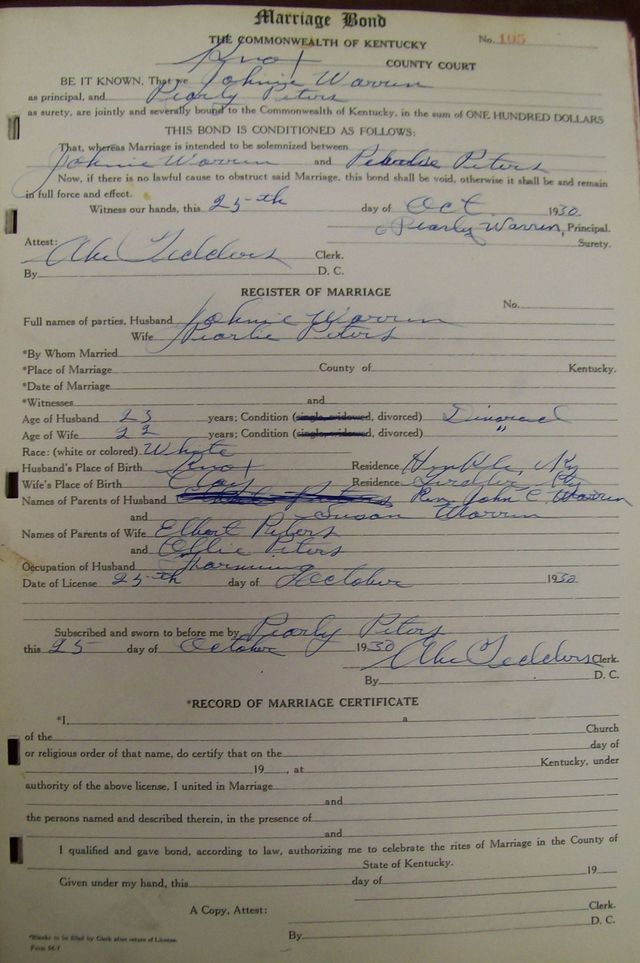 Marriage Bond
THE COMMONWEALTH OF KENTUCKY No. 105
Knox COUNTY COURT
BE IT KNOWN, That we Johnie Warren
as principal, and Pearly Peters
as surety, are jointly and severally bound to the Commonwealth of Kentucky, in the sum of ONE HUNDRED DOLLARS
THIS BOND IS CONDITIONED AS FOLLOWS:
That, whereas Marriage is intended to be solemnized between
Johnie Warren and Peters
Now, if there is no lawful cause to obstruct said Marriage, this bond shall be void, otherwise it shall be and remain
in full force and effect.
Witness our hands, this 25th day of Oct 1930
Pearly Warren, Principal.
Surety.
Attest:
Abe Clerk.
By D. C.
REGISTER OF MARRIAGE
No.
Full names of parties, Husband Johnie Warren
Wife Pearlie Peters
*By Whom Married
*Place of Marriage County of Kentucky.
*Date of Marriage
*Witnesses and
Age of Husband 23 years; Condition (single, widowed, divorced) Divorced
Age of Wife 22 years; Condition (single, widowed, divorced) "
Race: (white or colored) White
Husband's Place of Birth Knox Residence Hinkle, Ky
Wife's Place of Birth Clay Residence Ky
Names of Parents of Husband Rev. John C. Warren
and Susan Warren
Names of Parents of Wife Elbert Peters
and Ollie Peters
Occupation of Husband Farming
Date of License 25th day of October 1930
Subscribed and sworn to before me by Pearly Peters
this 25 day of October 1930
Abe Clerk.
By D. C.
*RECORD OF MARRIAGE CERTIFICATE
*I, a
of the Church
or religious order of that name, do certify that on the day of
19 , at Kentucky, under
authority of the above license, I united in Marriage
and
the persons named and described therein, in the presence of
and
I qualified and gave bond, according to law, authorizing me to celebrate the rites of Marriage in the County of
State of Kentucky.
Given under my hand, this day of 19
A Copy, Attest: Clerk.
D. C.
By
*Blanks to be filled by Clerk after return of License.